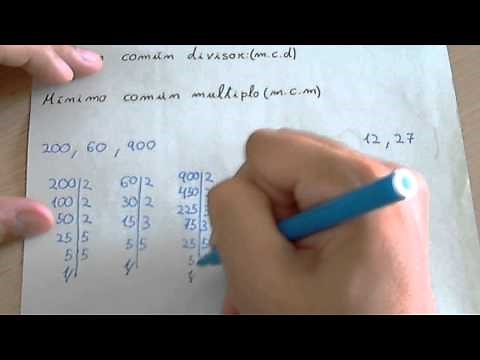 común divisor:(m.c.d)
Mínimo común multiplo(m.c.m)
200, 60, 900
12, 27
200|2
100|2
50|2
25|5
5|5
1
60|2
30|2
15|3
5|5
1
900|2
450
225
75|3
25|5
5
1